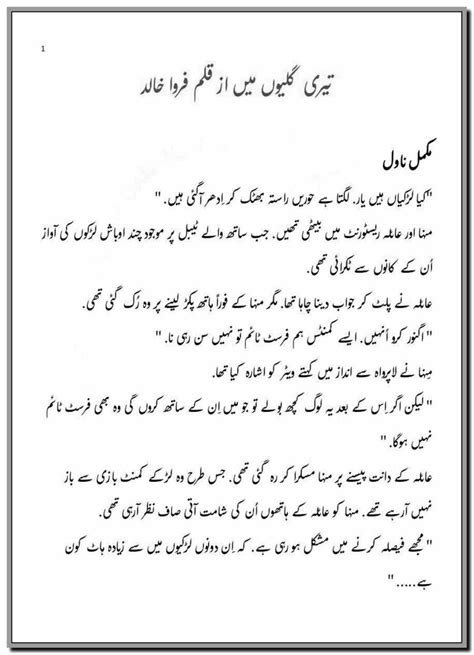 1
تیری گلیوں میں از قلم فروا خالد
مکمل ناول
"کیا لڑکیاں ہیں یار. لگتا ہے حوریں راستہ بھٹک کر اِدھر آگئی ہیں. "
منہا اور عائلہ ریسٹورنٹ میں بیٹھی تھیں. جب ساتھ والے ٹیبل پر موجود چند اوباش لڑکوں کی آواز
اُن کے کانوں سے ٹکرائی تھی.
عائلہ نے پلٹ کر جواب دینا چاہا تھا. مگر منہا کے فوراً ہاتھ پکڑ لینے پر وہ رُک گئی تھی.
" اگنور کرو اُنہیں. ایسے کمنٹس ہم فرسٹ ٹائم تو نہیں سن رہی نا. "
مِنہا نے لاپرواہ سے انداز میں کہتے ویٹر کو اشارہ کیا تھا.
" لیکن اگر اِس کے بعد یہ لوگ کچھ بولے تو جو میں اِن کے ساتھ کروں گی وہ بھی فرسٹ ٹائم
نہیں ہوگا. "
عائلہ کے دانت پیسنے پر منہا مسکرا کر رہ گئی تھی. جس طرح وہ لڑکے کمنٹ بازی سے باز
نہیں آرہے تھے. منہا کو عائلہ کے ہاتھوں اُن کی شامت آتی صاف نظر آرہی تھی.
" مجھے فیصلہ کرنے میں مشکل ہو رہی ہے. کہ اِن دونوں لڑکیوں میں سے زیادہ ہاٹ کون
ہے..... "